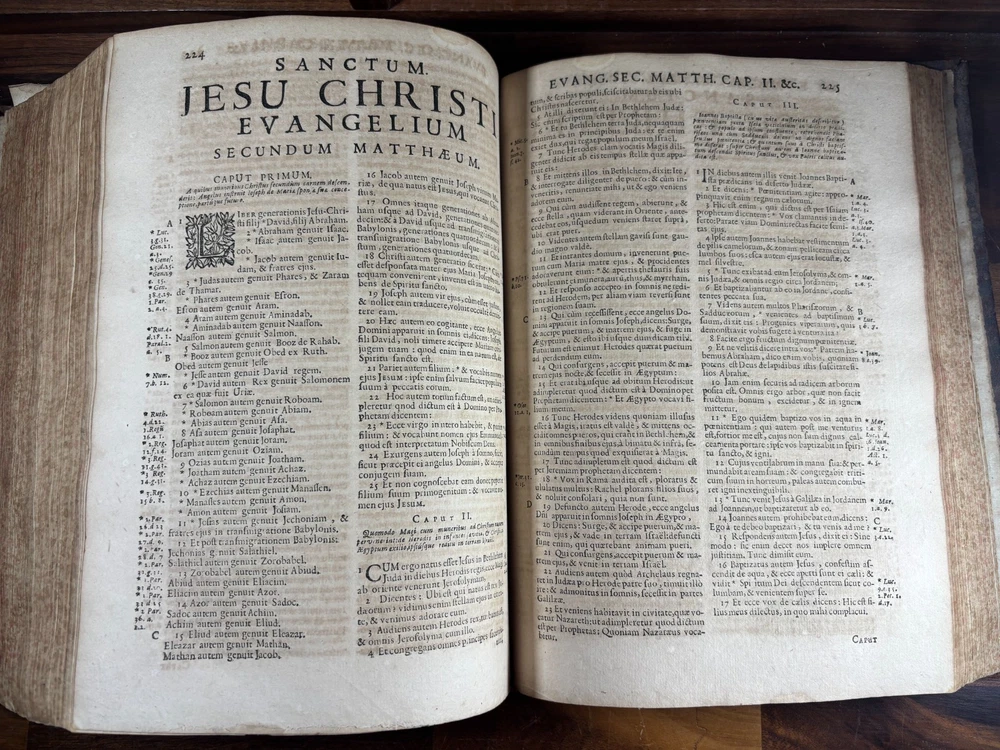 224
SANCTUM.
JESU CHRISTI
EVANGELIUM
SECUNDUM MATTHÆUM.
CAPUT PRIMUM.
A quibus majoribus Christus secundum carnem descen-
Angelus instruit Joseph de Maria sponsa sua
LIBER generationis Jesu-Chri-
sti filij David, filij Abraham.
* Abraham genuit Isaac.
* Isaac autem genuit Ja-
cob.
* Jacob autem genuit Iu-
dam, & fratres ejus.
3 * Judas autem genuit Phares, & Zaram
de Thamar.
* Phares autem genuit Esron.
Esron autem genuit Aram.
4 Aram autem genuit Aminadab.
* Aminadab autem genuit Naasson.
Naasson autem genuit Salmon.
5 Salmon autem genuit Booz de Rahab.
* Booz autem genuit Obed ex Ruth.
Obed autem genuit Jesse
* Jesse autem genuit David regem.
6 * David autem Rex genuit Salomonem
ex ea quæ fuit Uriæ.
7 * Salomon autem genuit Roboam.
* Roboam autem genuit Abiam.
* Abias autem genuit Asa.
8 Asa autem genuit Josaphat.
Josaphat autem genuit Joram.
Joram autem genuit Oziam.
9 Ozias autem genuit Joatham.
* Joatham autem genuit Achaz.
* Achaz autem genuit Ezechiam.
10 * Ezechias autem genuit Manassen.
* Manasses autem genuit Amon.
* Amon autem genuit Josiam.
11 * Josias autem genuit Jechoniam, &
fratres ejus in transmigratione Babylonis.
12 Et post transmigrationem Babylonis.
Jechonias genuit Salathiel.
* Salathiel autem genuit Zorobabel.
13 Zorobabel autem genuit Abiud.
Abiud autem genuit Eliacim.
Eliacim autem genuit Azor.
14 Azor autem genuit Sadoc.
Sadoc autem genuit Achim.
Achim autem genuit Eliud.
15 Eliud autem genuit Eleazar.
Eleazar autem genuit Mathan.
Mathan autem genuit Jacob.
16 Jacob autem genuit Joseph virum Ma-
riæ, de qua natus est Jesus, qui vocatur
17 Omnes itaque generationes ab Abra-
ham usque ad David, generationes
decim: & à David usque ad transmigrationem
Babylonis, generationes quatuordecim:
transmigratione Babylonis usque ad Chri-
stum generationes quatuordecim.
18 Christi autem generatio sic erat: * Cum
esset desponsata mater ejus Maria Joseph,
tequam convenirent inventa est in utero ha-
bens de Spiritu sancto.
19 Joseph autem vir ejus, cùm esset justus
& nollet eam traducere, voluit occultè
tere eam.
20 Hæc autem eo cogitante, ecce Angelus
Domini apparuit in somnis ei, dicens: Joseph
fili David, noli timere accipere Mariam con-
jugem tuam: quod enim in ea natum est, de
Spiritu sancto est.
21 Pariet autem filium: * & vocabis nomen
ejus JESUM: ipse enim salvum faciet populum
suum à peccatis eorum.
22 Hoc autem totum factum est, ut adim-
pleretur quod dictum est à Domino per Pro-
phetam dicentem:
23 * Ecce virgo in utero habebit, & pariet
filium: & vocabunt nomen ejus Emmanuel,
quod est interpretatum Nobiscum Deus.
24 Exurgens autem Joseph à somno, fecit,
sicut præcepit ei angelus Domini, & accepit
conjugem suam.
25 Et non cognoscebat eam donec peperit
filium suum primogenitum: & vocavit no-
men ejus JESUM.
CAPUT II.
Quomodo Magi cum muneribus ad Christum
Ægyptum
1 CUM ergo natus esset Jesus in Bethlehem
Juda in diebus Herodis regis, ecce Magi
ab oriente venerunt Jerosolymam.
2 Dicentes: Ubi est qui natus est rex
dæorum? vidimus enim stellam ejus in orien-
te, & venimus adorare eum.
3 Audiens autem Herodes rex, turbatus est
& omnis Jerosolyma cum illo.
4 Et congregans omnes principes
EVANG. SEC. MATTH. CAP. II. &c. 225
tum, & scribas populi, sciscitabatur ab eis ubi
Christus nasceretur.
At illi dixerunt ei: In Bethlehem Judæ:
Sic enim scriptum est per Prophetam:
6 * Et tu Bethlehem terra Juda, nequaquam
minima es in principibus Juda: ex te enim
exiet dux, qui regat populum meum Israël.
7 Tunc Herodes clam vocatis Magis dili-
genter didicit ab eis tempus stellæ quæ appa-
ruit eis:
8 Et mittens illos in Bethlehem, dixit: Ite,
& interrogate diligenter de puero: & cùm in-
veneritis, renuntiate mihi, ut & ego veniens
adorem eum.
9 Qui cùm audissent regem, abierunt, &
ecce stella, quam viderant in Oriente, ante-
cedebat eos, usquedum veniens staret supra,
ubi erat puer.
10 Videntes autem stellam gavisi sunt gau-
dio magno valde.
11 Et intrantes domum, invenerunt pue-
rum cum Maria matre ejus, & procidentes
adoraverunt eum: * & apertis thesauris suis
obtulerunt ei munera, aurum, thus, & myrrham.
12 Et responso accepto in somnis ne redi-
rent ad Herodem, per aliam viam reversi sunt
in regionem suam.
13 Qui cùm recessissent, ecce angelus Do-
mini apparuit in somnis Joseph, dicens: Surge,
& accipe puerum, & matrem ejus, & fuge in
Ægyptum, & esto ibi usque dum dicam tibi.
Futurum est enim ut Herodes quærat puerum
ad perdendum eum.
14 Qui consurgens, accepit puerum & ma-
trem ejus nocte, & secessit in Ægyptum:
15 Et erat ibi usque ad obitum Herodis: ut
adimpleretur quod dictum est à Domino per
Prophetam dicentem: * Ex Ægypto vocavi fi-
lium meum.
16 Tunc Herodes videns quoniam illusus
esset à Magis, iratus est valde, & mittens oc-
cidit omnes pueros, qui erant in Bethlehem, &
in omnibus finibus ejus, à bimatu & infra, se-
cundum tempus quod exquisierat à Magis.
17 Tunc adimpletum est quod dictum est
per Jeremiam prophetam dicentem:
18 * Vox in Rama audita est, ploratus &
ululatus multus: Rachel plorans filios suos,
& noluit consolari, quia non sunt.
19 Defuncto autem Herode, ecce angelus
Dñi apparuit in somnis Joseph in Ægypto,
20 Dicens: Surge, & accipe puerum, & ma-
trem ejus, & vade in terram Israël: defuncti
sunt enim, qui quærebant animam pueri.
21 Qui consurgens, accepit puerum & ma-
trem ejus, & venit in terram Israël.
22 Audiens autem quod Archelaus regna-
ret in Judæa pro Herode patre suo, timuit illo
ire: & admonitus in somnis, secessit in partes
Galilææ.
23 Et veniens habitavit in civitate, quæ vo-
catur Nazareth: ut adimpleretur quod dictum
est per Prophetas: Quoniam Nazaræus voca-
bitur.
CAPUT III.
Joannes Baptista
1 IN diebus autem illis venit Joannes Bapti-
sta prædicans in deserto Judææ.
2 Et dicens: * Pœnitentiam agite: appro-
pinquavit enim regnum cælorum.
3 Hic est enim, qui dictus est per Isaiam
prophetam dicentem: * Vox clamantis in de-
serto: Parate viam Domini: rectas facite semi-
tas ejus.
4 Ipse autem Joannes habebat vestimentum
de pilis camelorum, & zonam pelliceam circa
lumbos suos: esca autem ejus erat locustæ, &
mel silvestre.
5 * Tunc exibat ad eum Jerosolyma, & om-
nis Judæa, & omnis regio circa Jordanem.
6 Et baptizabantur ab eo in Jordane, confi-
tentes peccata sua.
7 Videns autem multos Pharisæorum, &
Sadducæorum, * venientes ad baptismum
suum, dixit eis: Progenies viperarum, quis
demonstravit vobis fugere à ventura ira?
8 Facite ergo fructum dignum pœnitentiæ.
9 Et ne velitis dicere intra vos: * Patrem ha-
bemus Abraham, dico enim vobis, quoniam
potens est Deus de lapidibus istis suscitare fi-
lios Abrahæ.
10 Jam enim securis ad radicem arborum
posita est. Omnis ergo arbor, quæ non facit
fructum bonum, excidetur, & in ignem
mittetur.
11 * Ego quidem baptizo vos in aqua in
pœnitentiam: qui autem post me venturus
est, fortior me est, cujus non sum dignus cal-
ceamenta portare: ipse vos baptizabit in spiri-
tu sancto, & igni.
12 Cujus ventilabrum in manu sua: & per-
mundabit aream suam: & congregabit triti-
cum suum in horreum, paleas autem combu-
ret igni inextinguibili.
13 * Tunc venit Jesus à Galilæa in Jordanem
ad Joannem, ut baptizaretur ab eo.
14 Joannes autem prohibebat eum, dicens:
Ego à te debeo baptizari, & tu venis ad me?
15 Respondens autem Jesus, dixit ei: Sine
modo: sic enim decet nos implere omnem
justitiam. Tunc dimisit eum.
16 Baptizatus autem Jesus, confestim as-
cendit de aqua, & ecce aperti sunt ei cæli: &
vidit * Spiritum Dei descendentem sicut co-
lumbam, & venientem super se.
17 Et ecce vox de cælis dicens: Hic est fi-
lius meus dilectus, in quo mihi complacui.
CAPUT